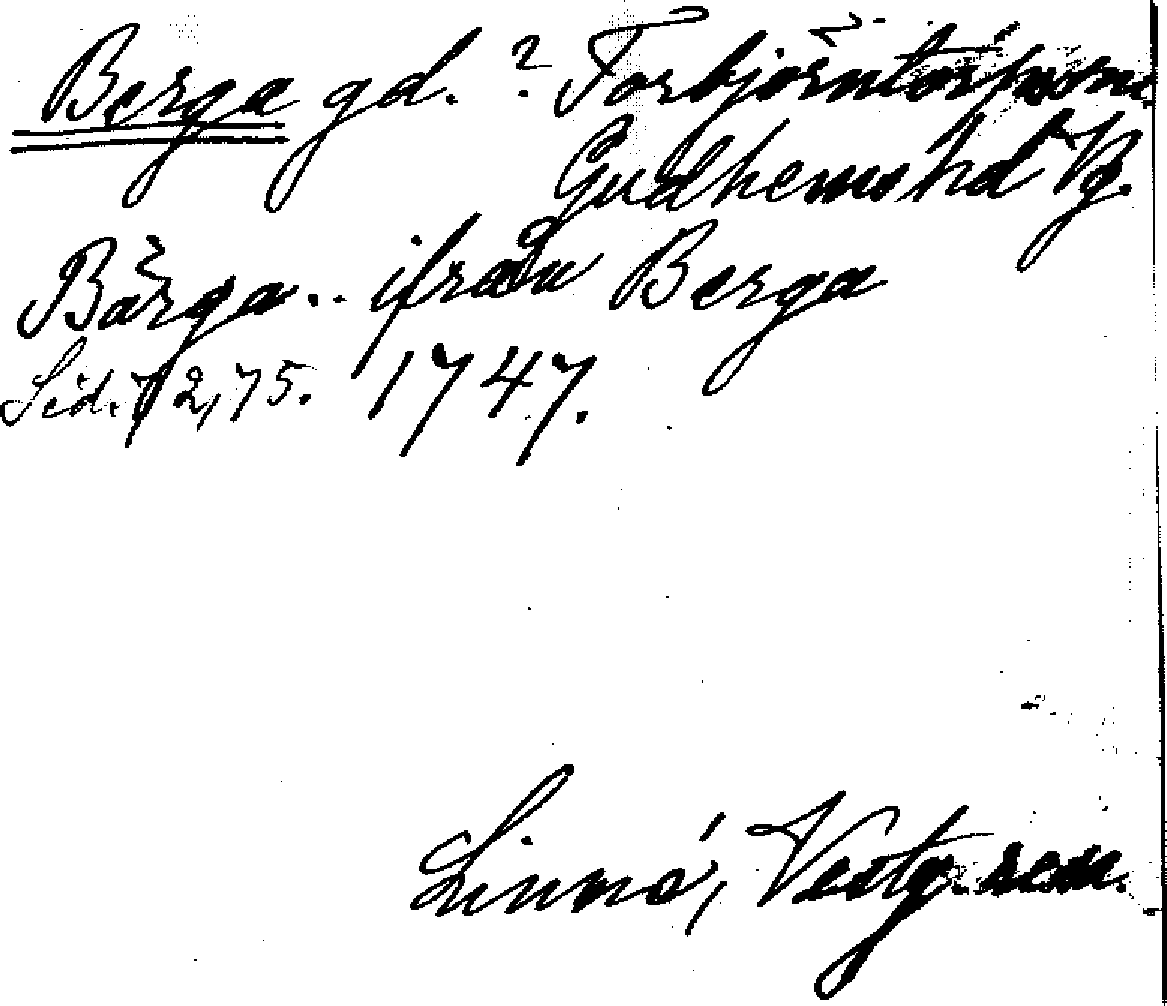 Berga gd. ? Torbjörntorps sn
Gudhems hd Vg.
Bärga .. ifrån Berga
Sid. 72, 75. 1747.
Linné, Vestg. resa.